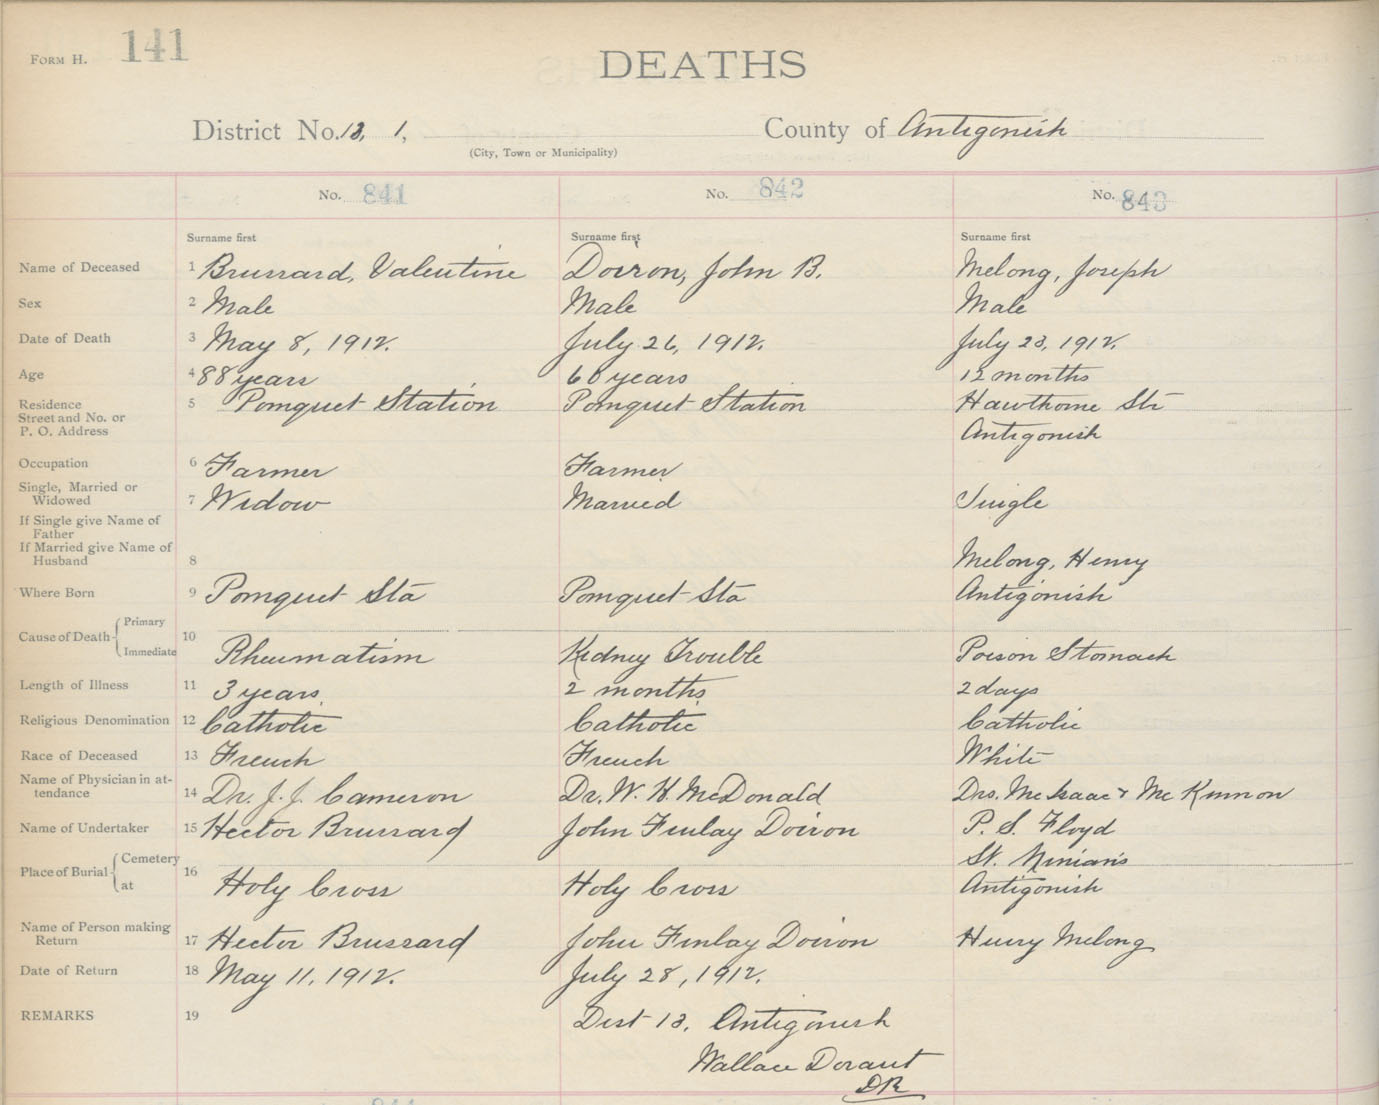 FORM H. 141
DEATHS
District No. 13, 1, County of Antigonish
(City, Town or Municipality)
No. 841 No. 842 No. 843
Surname first Surname first Surname first
Name of Deceased 1 Brussard, Valentine Doiron, John B. Melong, Joseph
Sex 2 Male Male Male
Date of Death 3 May 8, 1912. July 26, 1912. July 23, 1912.
Age 4 88 years 60 years 12 months
Residence Street and No. or P. O. Address 5 Pomquet Station Pomquet Station Hawthorne Str
Antigonish
Occupation 6 Farmer Farmer
Single, Married or Widowed 7 Widow Married Single
If Single give Name of Father
If Married give Name of Husband 8 Melong, Henry
Where Born 9 Pomquet Sta Pomquet Sta Antigonish
Cause of Death Primary
Immediate 10 Rheumatism Kidney Trouble Poison Stomach
Length of Illness 11 3 years 2 months 2 days
Religious Denomination 12 Catholic Catholic Catholic
Race of Deceased 13 French French White
Name of Physician in attendance 14 Dr. J. J. Cameron Dr. W. H. McDonald Drs. McIsaac & McKinnon
Name of Undertaker 15 Hector Brussard John Finlay Doiron P. S. Floyd
Place of Burial Cemetery 16 St. Ninian's
at Holy Cross Holy Cross Antigonish
Name of Person making Return 17 Hector Brussard John Finlay Doiron Henry Melong
Date of Return 18 May 11, 1912. July 28, 1912.
REMARKS 19 Dist 13, Antigonish
Wallace
DR